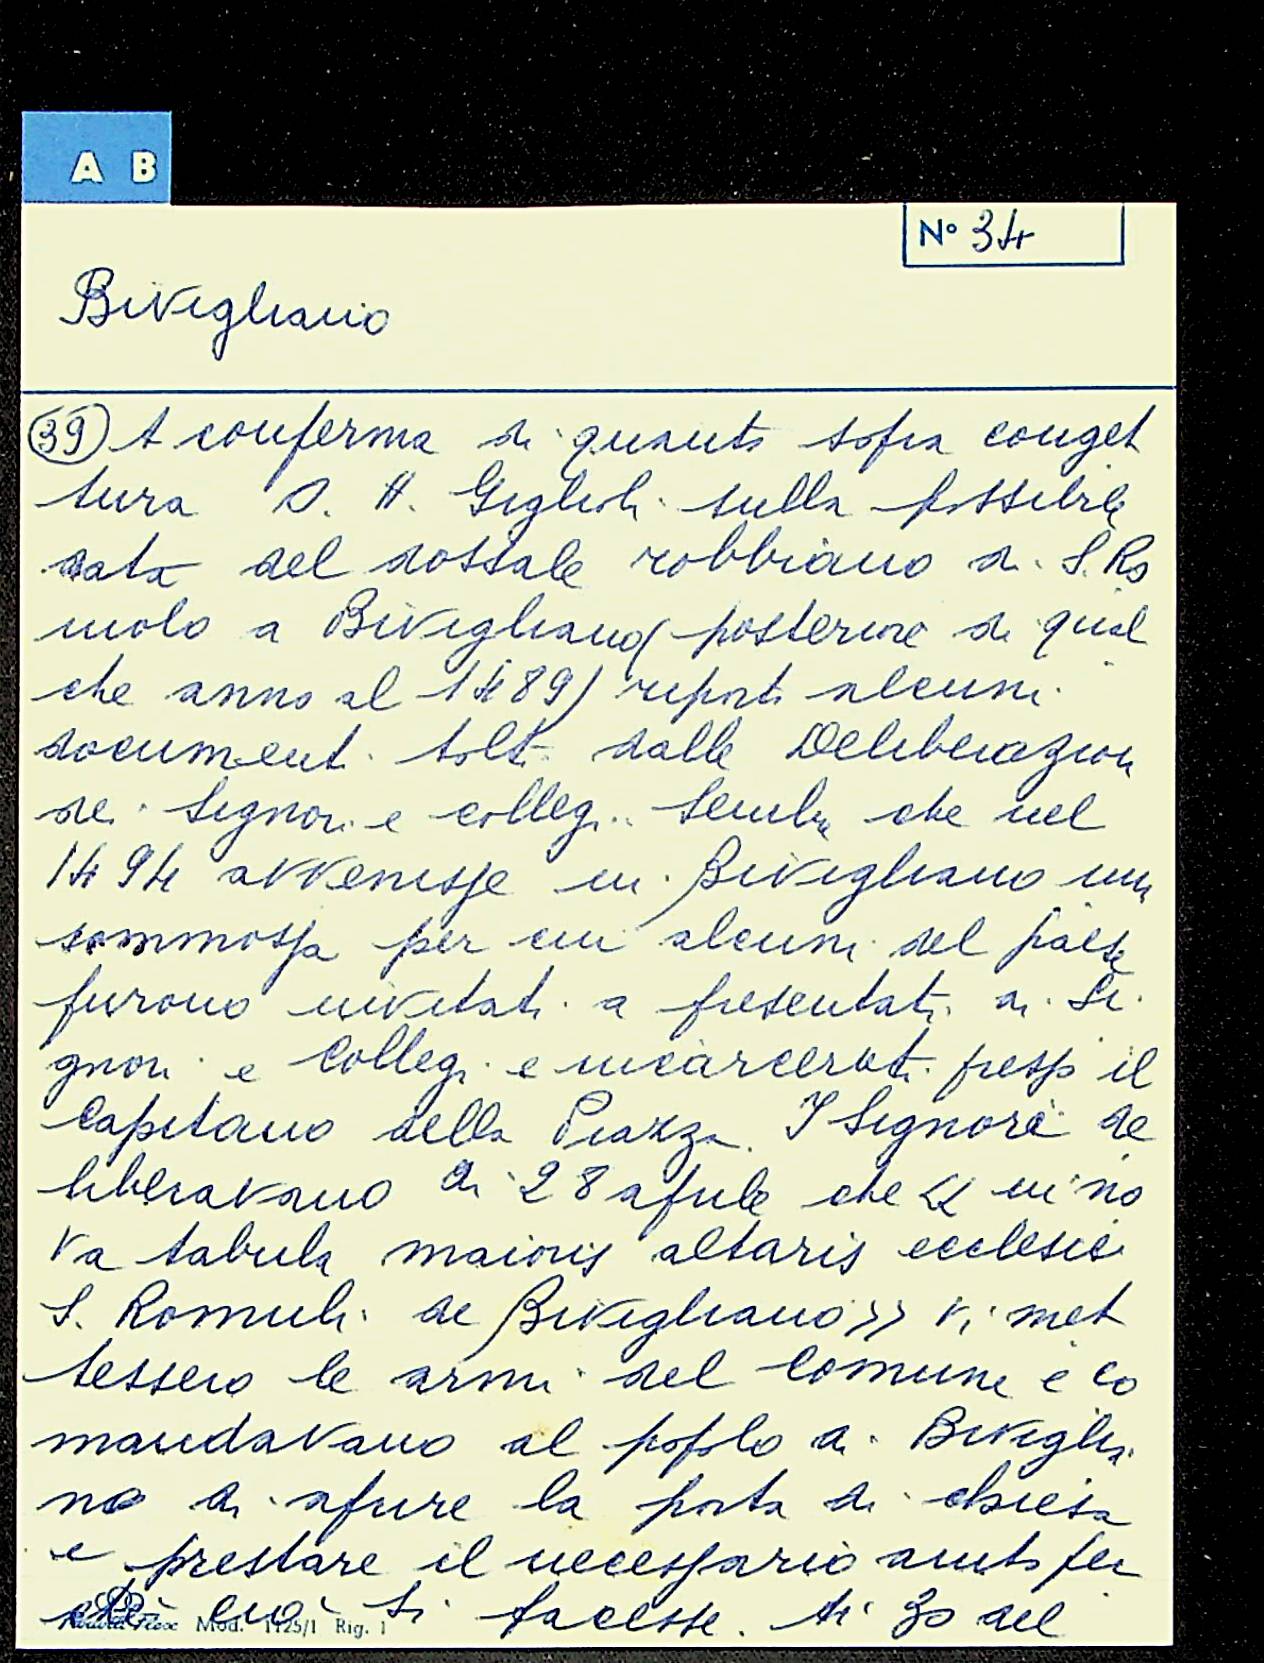 A B
N° 34
Bivigliano
(39) A conferma di quanto sopra conget
tura O. H. Giglioli sulla possibile
data del dossale robbiano di S. Ro
molo a Bivigliano (posteriore di qual
che anno al 1489) riporto alcuni
documenti tolti dalle Deliberazioni
dei Signori e collegi. Sembra che nel
1494 avvenisse in Bivigliano una
sommossa per cui alcuni del paese
furono invitati a presentati ai Si
gnori e Collegi e incarcerati presso il
Capitano della Piazza. I Signori de
liberavano di 28 aprile che << in no
va tabula maioris altaris ecclesie
S. Romuli de Bivigliano >> vi met
tessero le armi del Comune e co
mandavano al popolo di Biviglia
no di aprire la porta di chiesa
e prestare il necessario aiuto per
ciò si facesse. Ai 30 del
Mod. 1125/1 Rig. 1